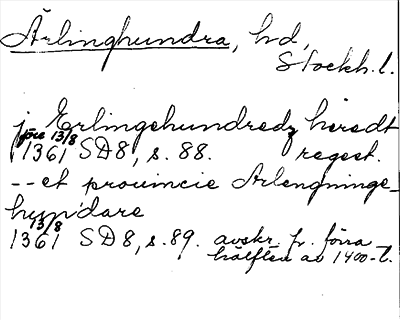 Ärlinghundra, hd,
Stockh. l.
j Erlingehundredz hæredt
före 13/8
1361 SD8, s. 88. regest.
-- et prouincie Arlengninge-
hundare
13/8
1361 SD8, s. 89. avskr. fr. förra
hälften av 1400-t.